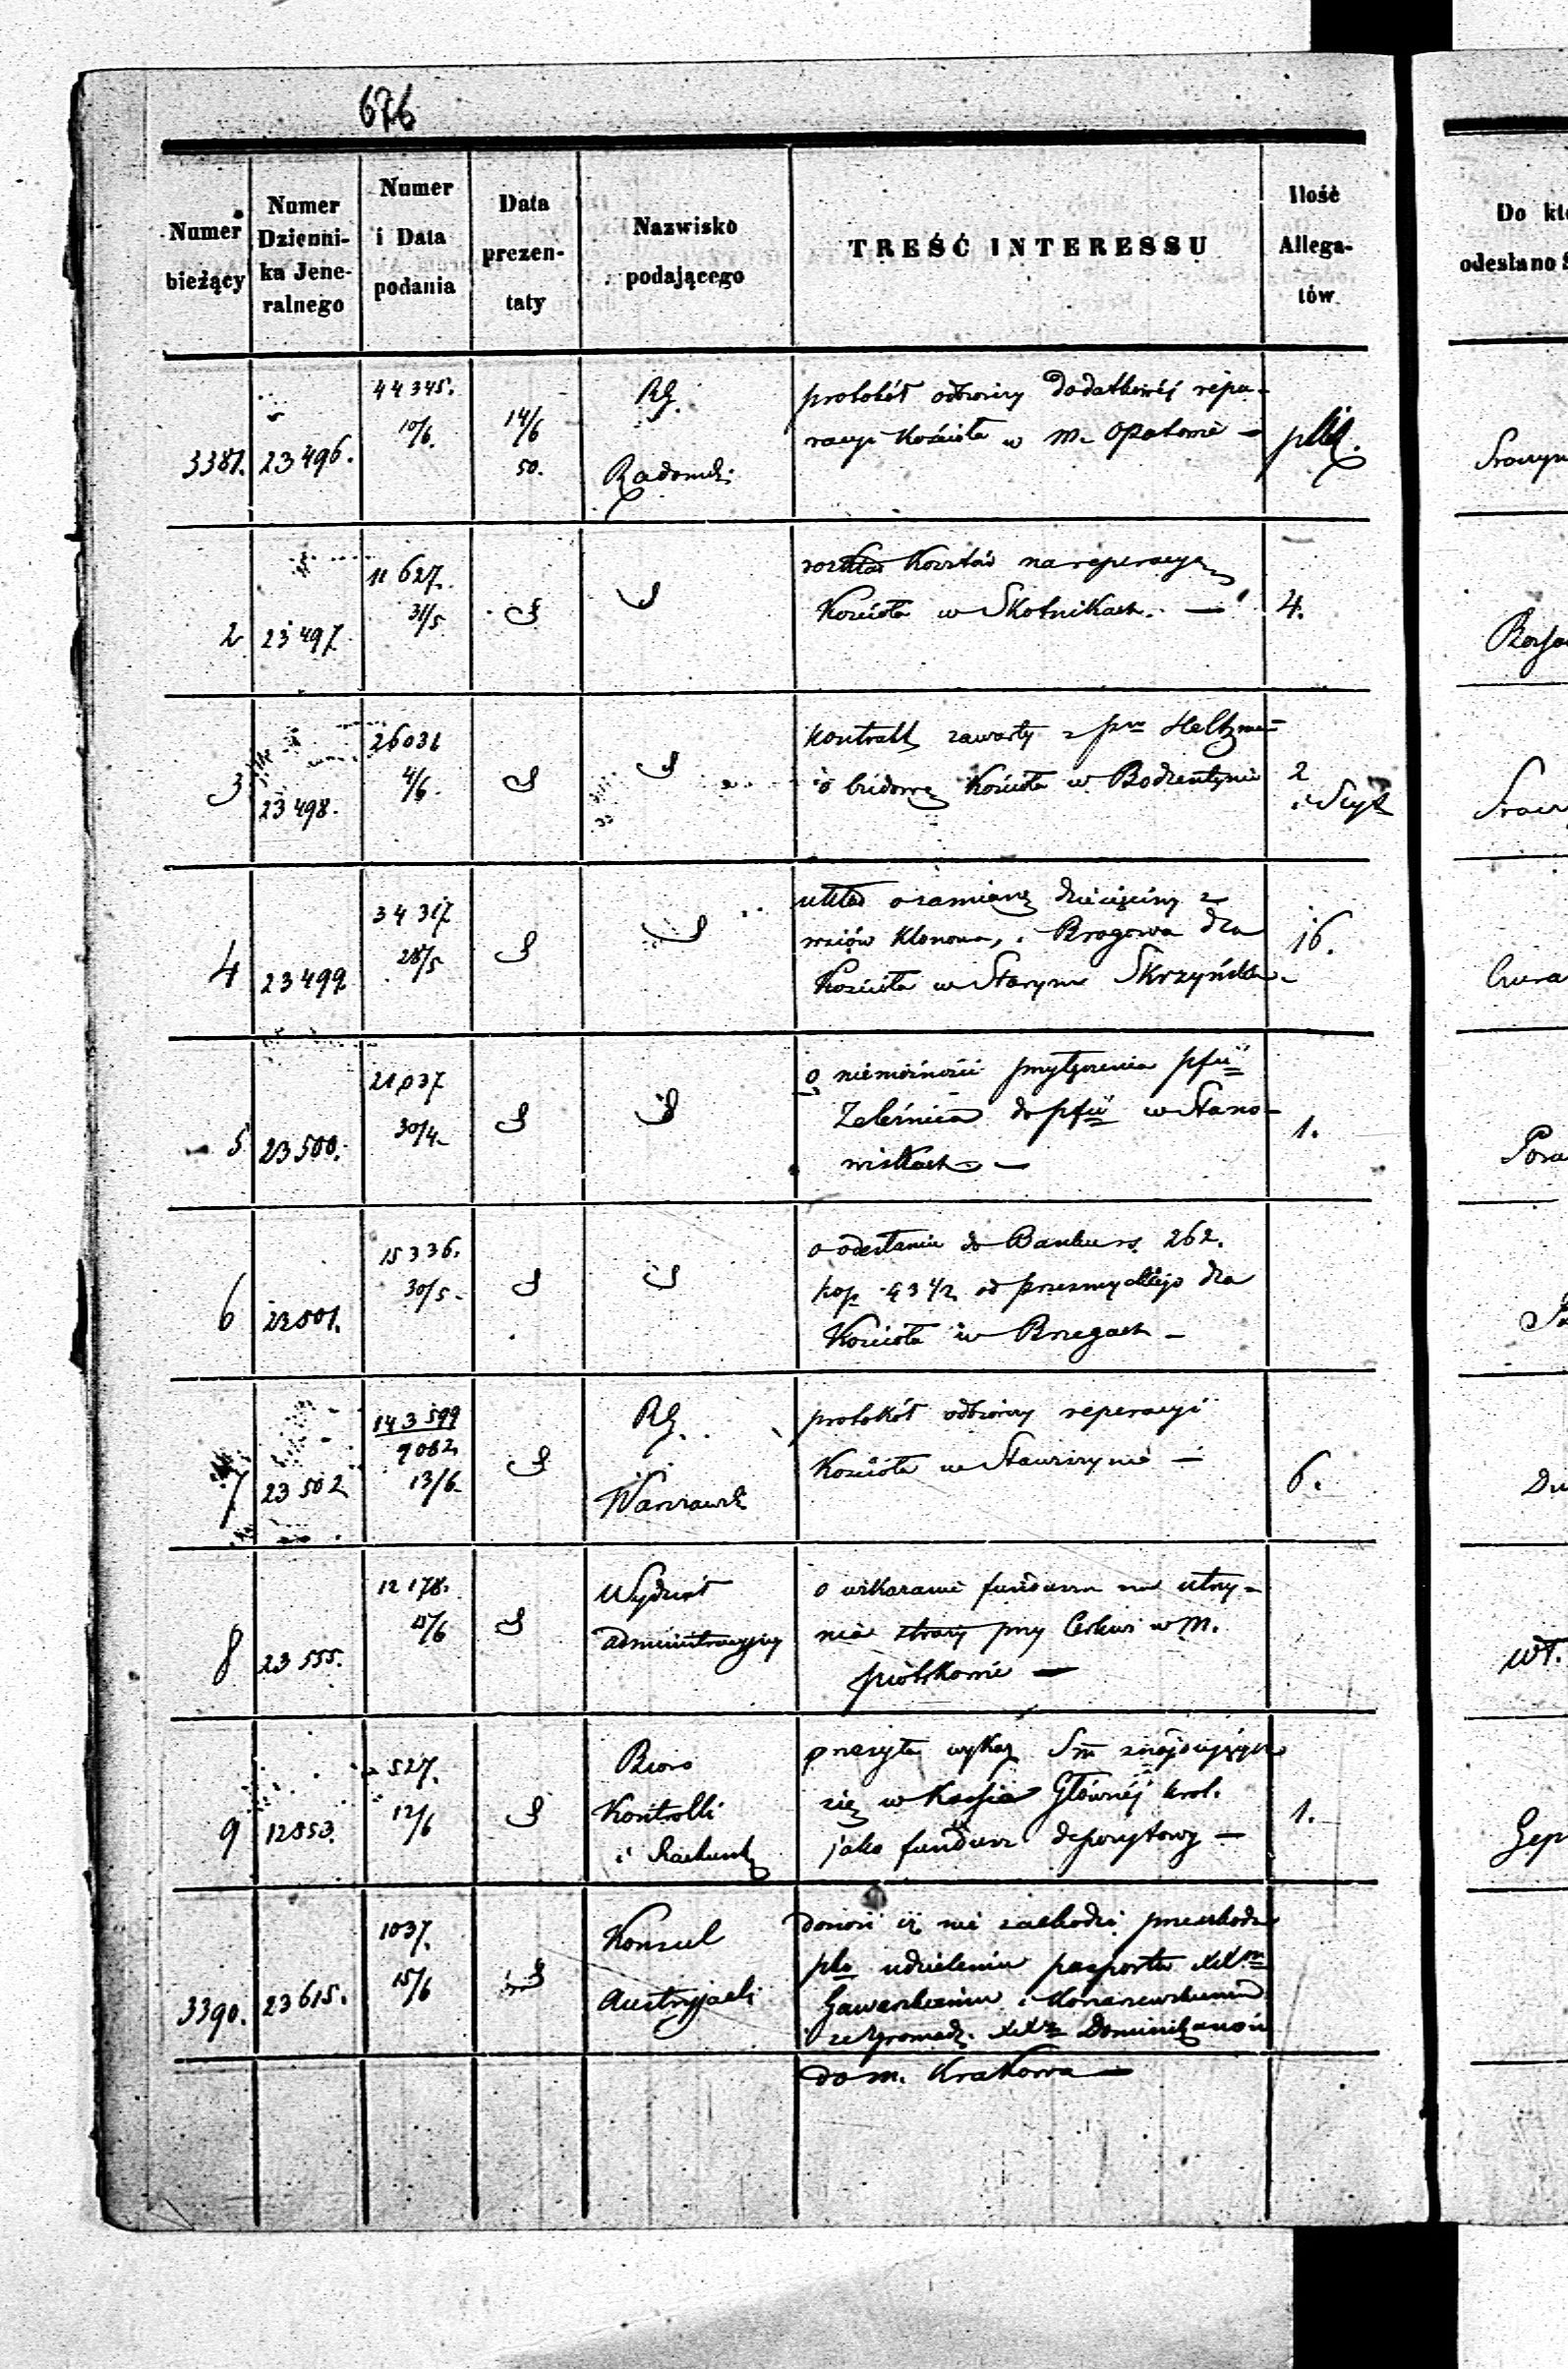 676
Numer bieżący
Numer Dzienni- ka Jene- ralnego
Numer i Data podania
Data prezen- taty
Nazwisko podającego
TREŚĆ INTERESSU
Ilość Allega- tów
Do kt
odesłano
3381. 23496.
44345.
10/6.
14/6
50.
RG.
Radomski
protokół odbiorczy dodatkowéj repa-
racyi Kościoła w m. Opatowie —
2 23497
11627.
31/5
rozkład Kosztów na reperacyę
Kościoła w Skotnikach. —
4.
3
23498.
26031
4/6.
kontrakt zawarty z
o budowę Kościoła w Bodzentynie
2
4 23499
34317
28/5
układ o zamianę dziesięciny z
wsiów Klonowa, i Brogowa dla
Kościoła w Starym Skrzyńsku
16.
5 23500.
21037
30/4.
o niemożności przyłączenia pfii
Zeleźnica do pfii w Stano-
wiskach —
1.
6
15336.
30/5.
o odesłaniu do Banku rs. 262.
kop. 43 1/2 od Przesmyckiego dla
Kościoła w Brzegach —
7 23502
143599
9082
13/6
RG.
Warszawski
protokół odbiorczy reperacyi
Kościoła w
6.
8 23555.
12178.
Wydział
Administracyjny
o wskazanie funduszu na utrzy-
nia straży przy Cerkwi w M.
Piotrkowie —
9 12853.
527.
12/6
Biuro
Kontrolli
i Rachunk
przesyła wykaz Sm znajdujących
się w Kassie Głównéj Król.
jako fundusz depozytowy —
1.
3390. 23615.
1037.
15/6
Konsul
Austryjacki
donosi iż nie zachodzi przeszkoda
udzieleniu paszportu XX
ze Zgromadz. XX Dominikanów
do m. Krakowa —